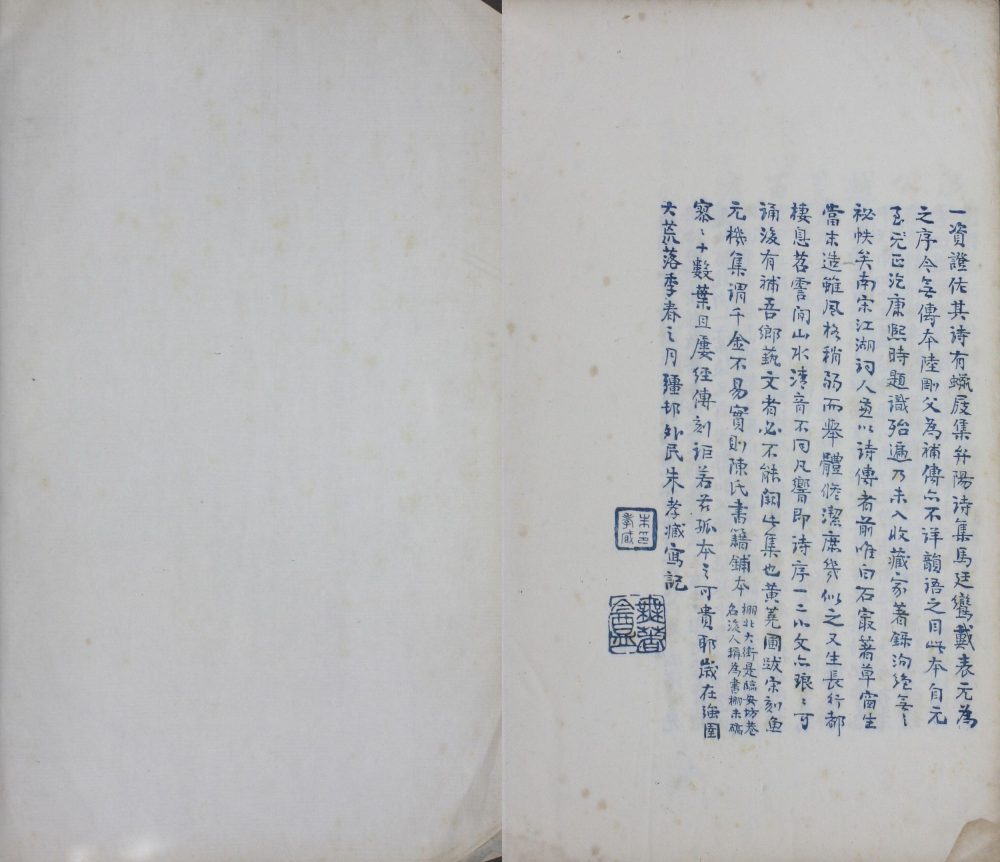 一資證佐其詩有蠟屐集弁陽詩集馬廷鸞戴表元為
之序今無傳本陸剛父為補傳亦不詳韻語之目此本自元
至元正汔康熙時題識殆遍乃未入收藏家著錄洵絕無之
祕帙矣南宋江湖詞人並以詩傳者前唯白石最著草窗生
當末造雖風格稍弱而舉體修潔庶幾似之又生長行都
棲息苕霅間山水清音不同凡響即詩序一二小文亦琅〻可
誦洵有補吾鄉藝文者必不能闕此集也黃蕘圃跋宋刻魚
元機集謂千金不易實則陳氏書籍鋪本
棚北大街是臨安坊巷
名後人稱為書棚未碻
寥〻十數葉且屢經傳刻詎若若孤本之可貴耶歲在強圉
大荒落季春之月彊邨外民朱孝臧寫記
朱印
孝臧
無著
盦